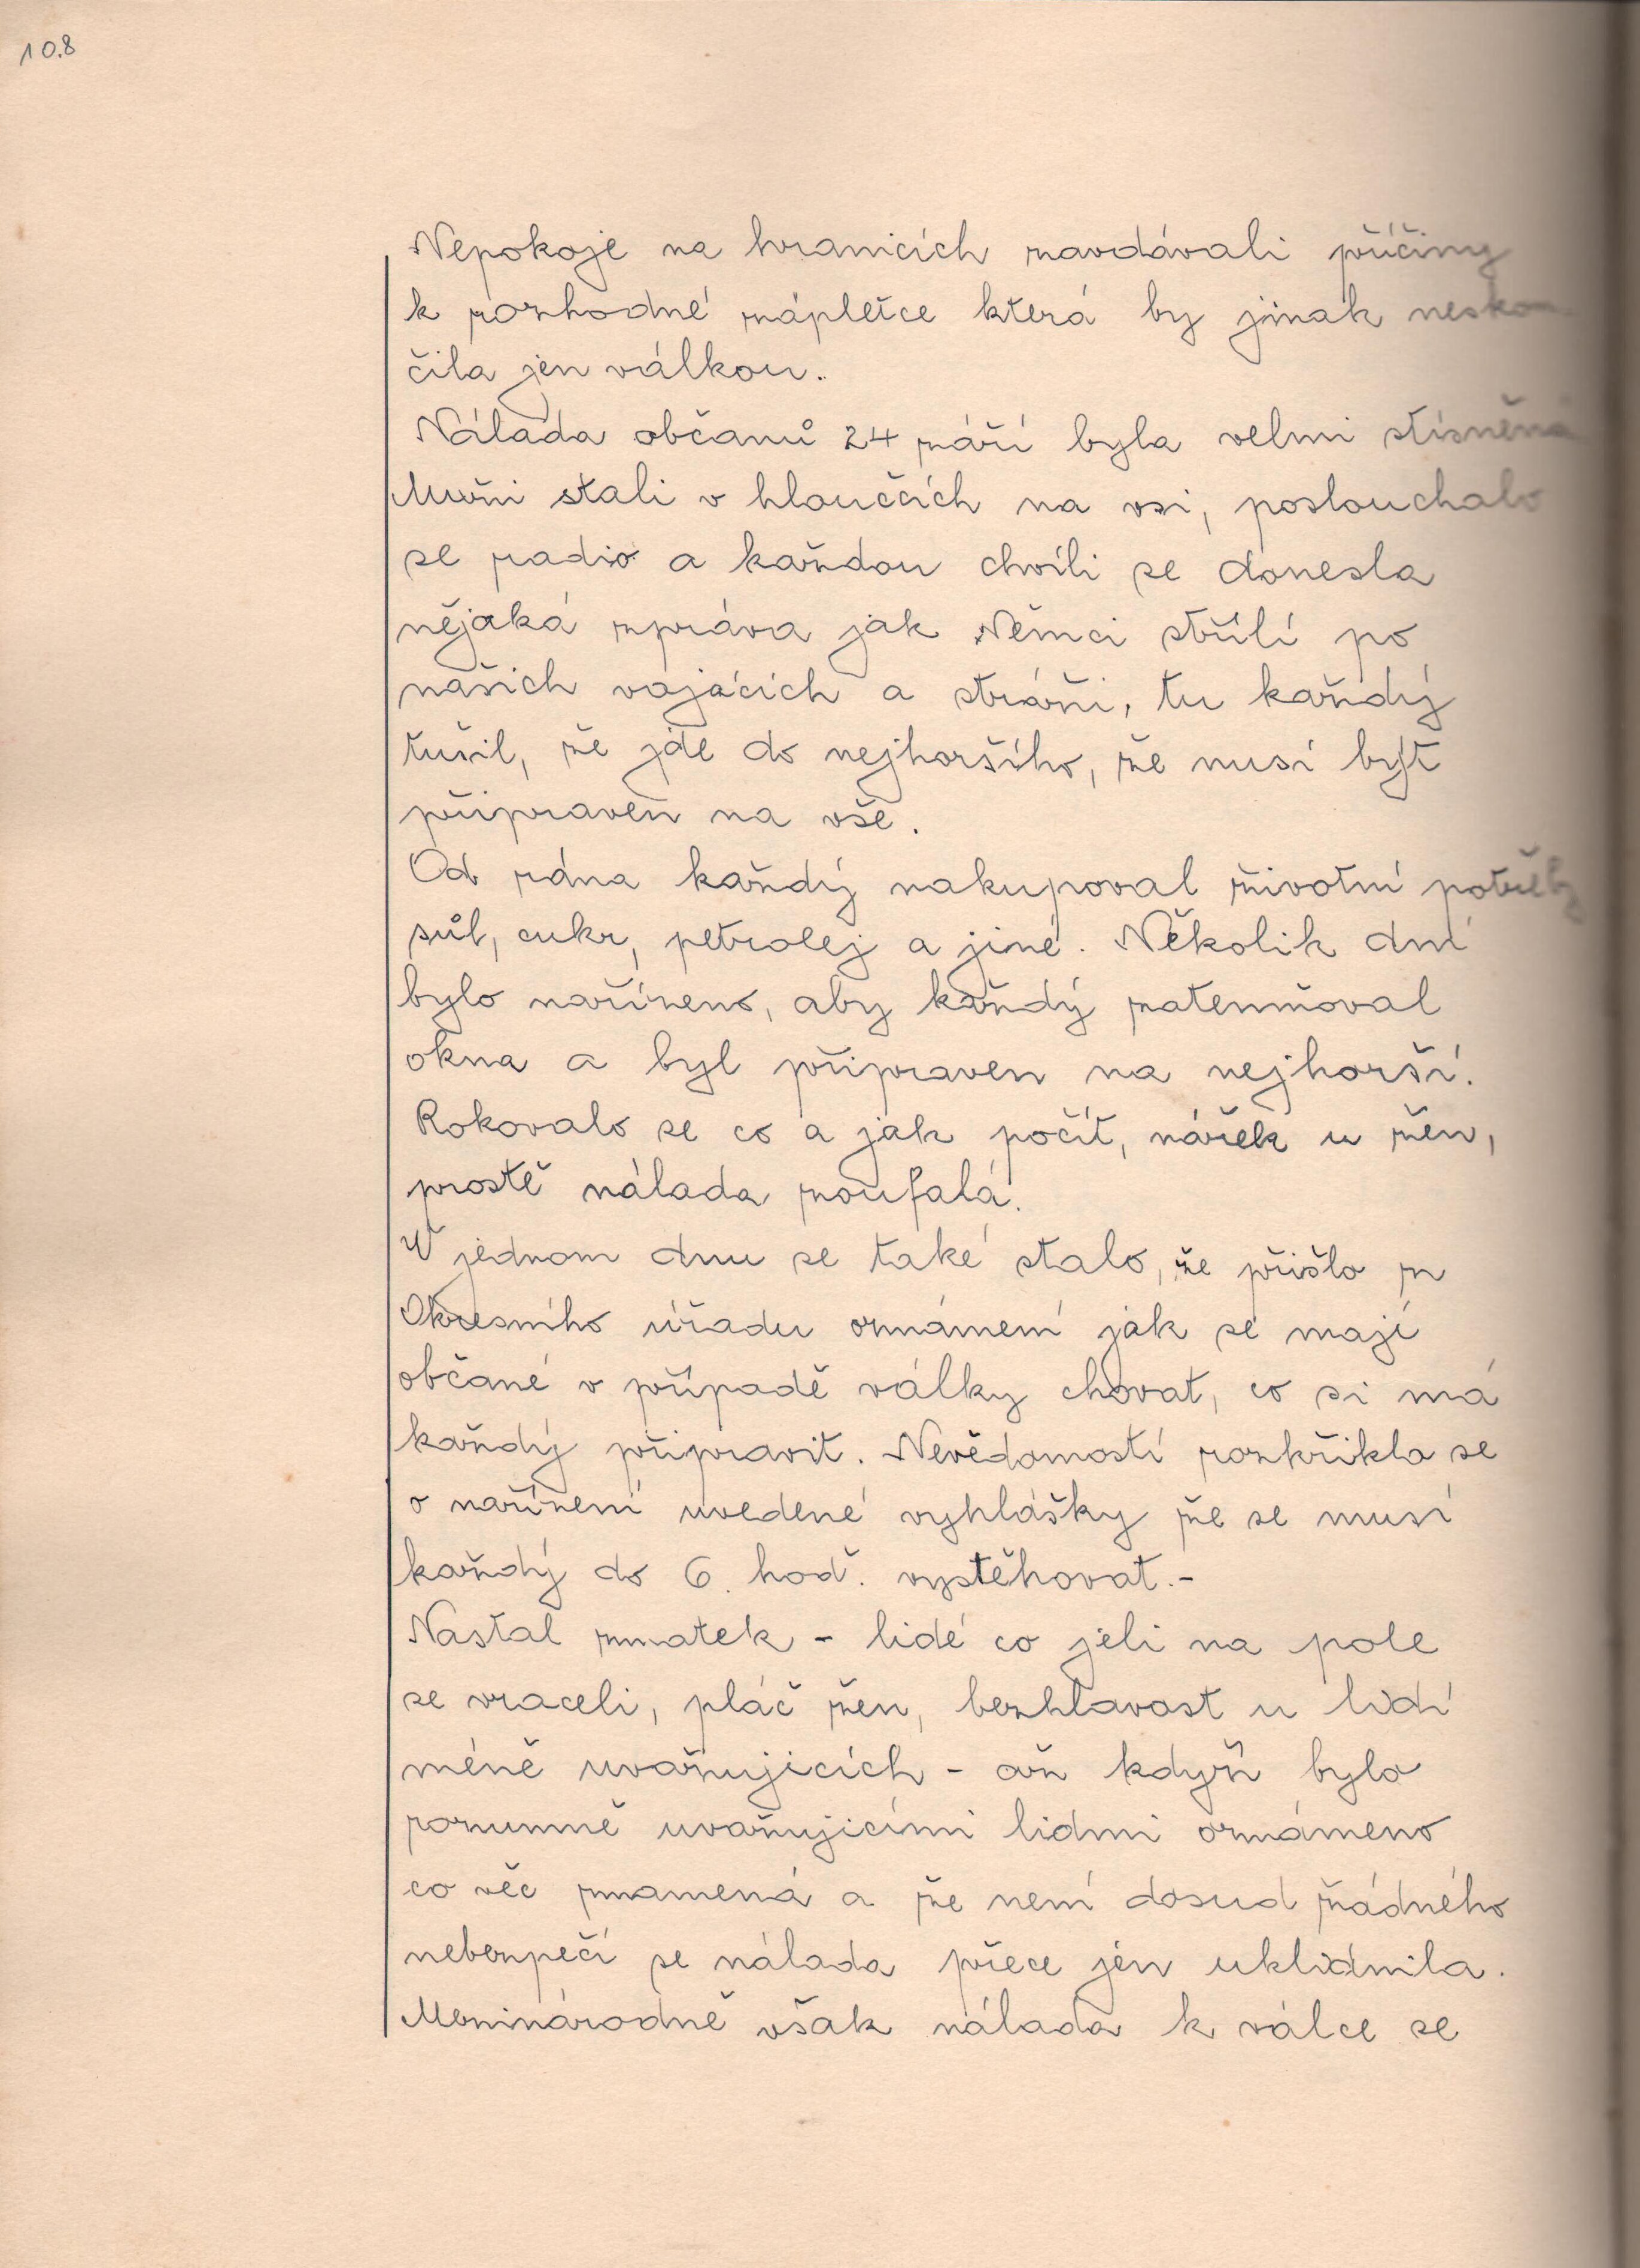 108
Nepokoje na hranicích zavdávali příčiny
k rozhodné zápletce která by jinak neskon-
čila jen válkou.
Nálada občanů 24 září byla velmi stísněná
Muži stali v hloučcích na vsi, poslouchalo
se radio a každou chvíli se donesla
nějaká zpráva jak Němci střílí po
našich vojácích a stráži, tu každý
tušil, že jde do nejhoršího, že musí býť
připraven na vše.
Od rána každý nakupoval životní potřeby
sůl, cukr, petrolej a jiné. Několik dní
bylo nařízeno, aby každý zatemňoval
okna a byl připraven na nejhorší.
Rokovalo se co a jak počít, nářek u žen,
prostě nálada zoufalá.
V jednom dnu se také stalo, že přišlo z
Okresního úřadu oznámení jak se mají
občané v případě války chovat, co si má
každý připravit. Nevědomostí rozkřikla se
o nařízení uvedené vyhlášky že se musí
každý do 6. hod. vystěhovat.-
Nastal zmatek - lidé co jeli na pole
se vraceli, pláč žen, bezhlavost u lidí
méně uvažujících - až když bylo
rozumně uvažujícími lidmi oznámeno
co věc znamená a že není dosud žádného
nebezpečí se nálada přece jen uklidnila.
Mezinárodně však nálada k válce se